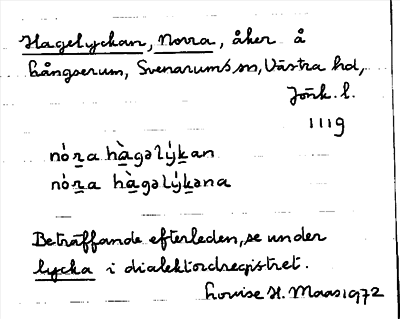 Hagelyckan, Norra, åker å
Långserum, Svenarums sn, Västra hd,
Jönk. l.
1119
nȯ́ra hàgəlý́kan
nȯ́ra hàgəlý́kəna
Beträffande efterleden, se under
lycka i dialektordregistret.
Louise H. Maas 1972